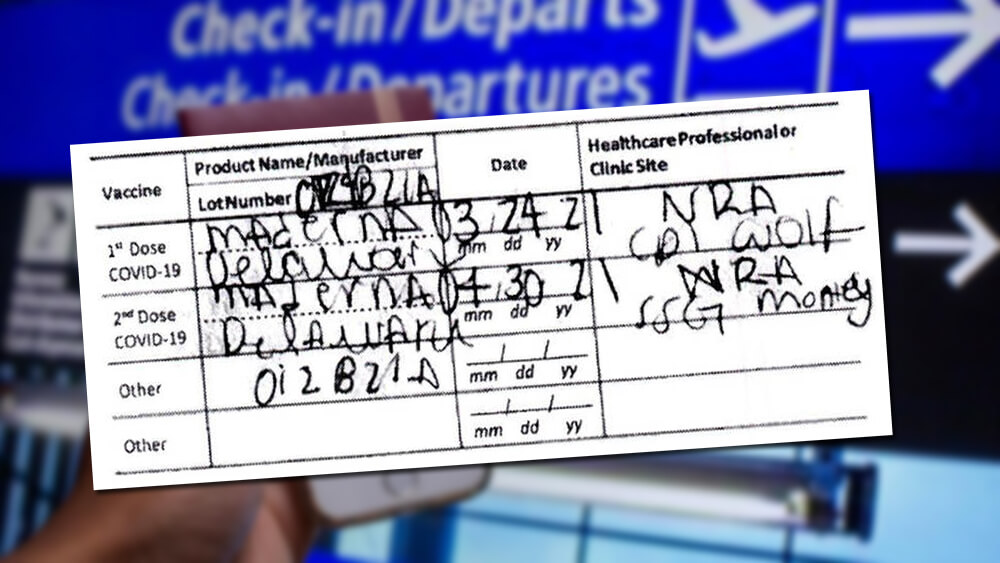 Check-in/Departs
Check-in/Departures
Vaccine
Product Name/Manufacturer
Lot Number
Date
Healthcare Professional or
Clinic Site
1st Dose
COVID-19
maderna
Delawar
03.24.21
mm dd yy
NRA
CPI Wolf
2nd Dose
COVID-19
maderna
Delaware
04.30 21
mm dd yy
NRA
SSG Montey
Other
012B21A
mm dd yy
Other
mm dd yy